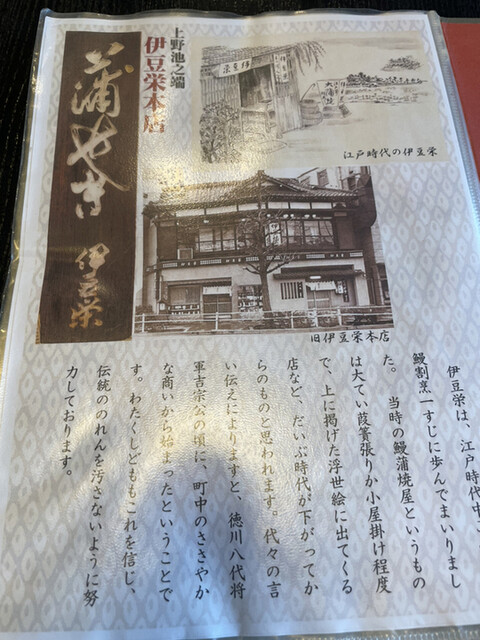 上野池之端
伊豆栄本店
蒲やき
伊豆栄
江戸時代の伊豆栄
旧伊豆栄本店
伊豆栄は、江戸時代中
鰻割烹一すじに歩んでまいりまし
た。　当時の鰻蒲焼屋というもの
は大てい葭簀張りか小屋掛け程度
で、上に掲げた浮世絵に出てくる
店など、だいぶ時代が下がってか
らのものと思われます。代々の言
い伝えによりますと、徳川八代将
軍吉宗公の頃に、町中のささやか
な商いから始まったということで
す。わたくしどももこれを信じ、
伝統ののれんを汚さないように努
力しております。